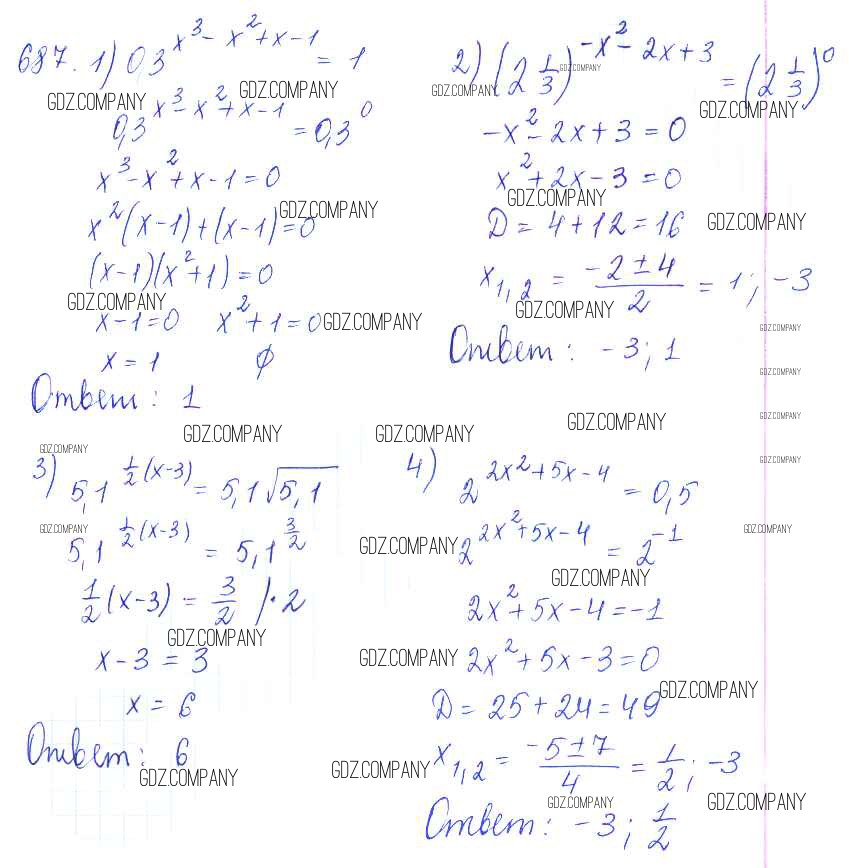 687. 1) 03^(x³-x²+x-1) = 1
GDZ.COMPANY GDZ.COMPANY
0,3^(x³-x²+x-1) = 0,3⁰
x³-x²+x-1=0
GDZ.COMPANY
x²(x-1)+(x-1)=0
(x-1)(x²+1)=0
GDZ.COMPANY
x-1=0 x²+1=0 GDZ.COMPANY
x=1 ∅
Ответ: 1
2) (2 1/3)^(-x²-2x+3) = (2 1/3)⁰
GDZ.COMPANY GDZ.COMPANY GDZ.COMPANY
-x²-2x+3=0
x²+2x-3=0
GDZ.COMPANY
D=4+12=16 GDZ.COMPANY
x₁,₂ = (-2±4)/2 = 1; -3
GDZ.COMPANY
Ответ: -3; 1
GDZ.COMPANY
GDZ.COMPANY
GDZ.COMPANY
GDZ.COMPANY
GDZ.COMPANY GDZ.COMPANY GDZ.COMPANY
GDZ.COMPANY
3) 5,1^(1/2(x-3)) = 5,1√5,1
GDZ.COMPANY
5,1^(1/2(x-3)) = 5,1^(3/2)
1/2(x-3) = 3/2 |·2
GDZ.COMPANY
x-3=3
x=6
Ответ: 6
GDZ.COMPANY
4) 2^(2x²+5x-4) = 0,5
GDZ.COMPANY
GDZ.COMPANY 2^(2x²+5x-4) = 2⁻¹
GDZ.COMPANY
2x²+5x-4=-1
GDZ.COMPANY 2x²+5x-3=0
GDZ.COMPANY
D=25+24=49
GDZ.COMPANY x₁,₂ = (-5±7)/4 = 1/2; -3
GDZ.COMPANY GDZ.COMPANY
Ответ: -3; 1/2